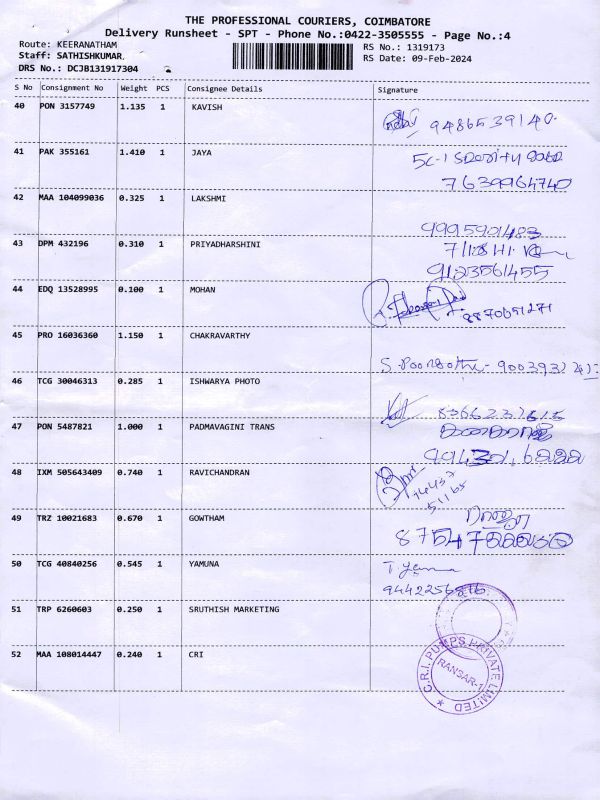 THE PROFESSIONAL COURIERS, COIMBATORE
Delivery Runsheet - SPT - Phone No.:0422-3505555 - Page No.:4
Route: KEERANATHAM
RS No.: 1319173
Staff: SATHISHKUMAR.
RS Date: 09-Feb-2024
DRS No.: DCJB131917304
S No Consignment No Weight PCS Consignee Details Signature
40 PON 3157749 1.135 1 KAVISH
9486539140.
41 PAK 355161 1.410 1 JAYA
7639964740
42 MAA 104099036 0.325 1 LAKSHMI
43 DPM 432196 0.310 1 PRIYADHARSHINI
9123561455
44 EDQ 13528995 0.100 1 MOHAN
8870691271
45 PRO 16036360 1.150 1 CHAKRAVARTHY
46 TCG 30046313 0.285 1 ISHWARYA PHOTO
47 PON 5487821 1.000 1 PADMAVAGINI TRANS
48 IXM 505643409 0.740 1 RAVICHANDRAN
49 TRZ 10021683 0.670 1 GOWTHAM
50 TCG 40840256 0.545 1 YAMUNA
51 TRP 6260603 0.250 1 SRUTHISH MARKETING
52 MAA 108014447 0.240 1 CRI
C.R.I. PUMPS PRIVATE LIMITED
RANSAR-1